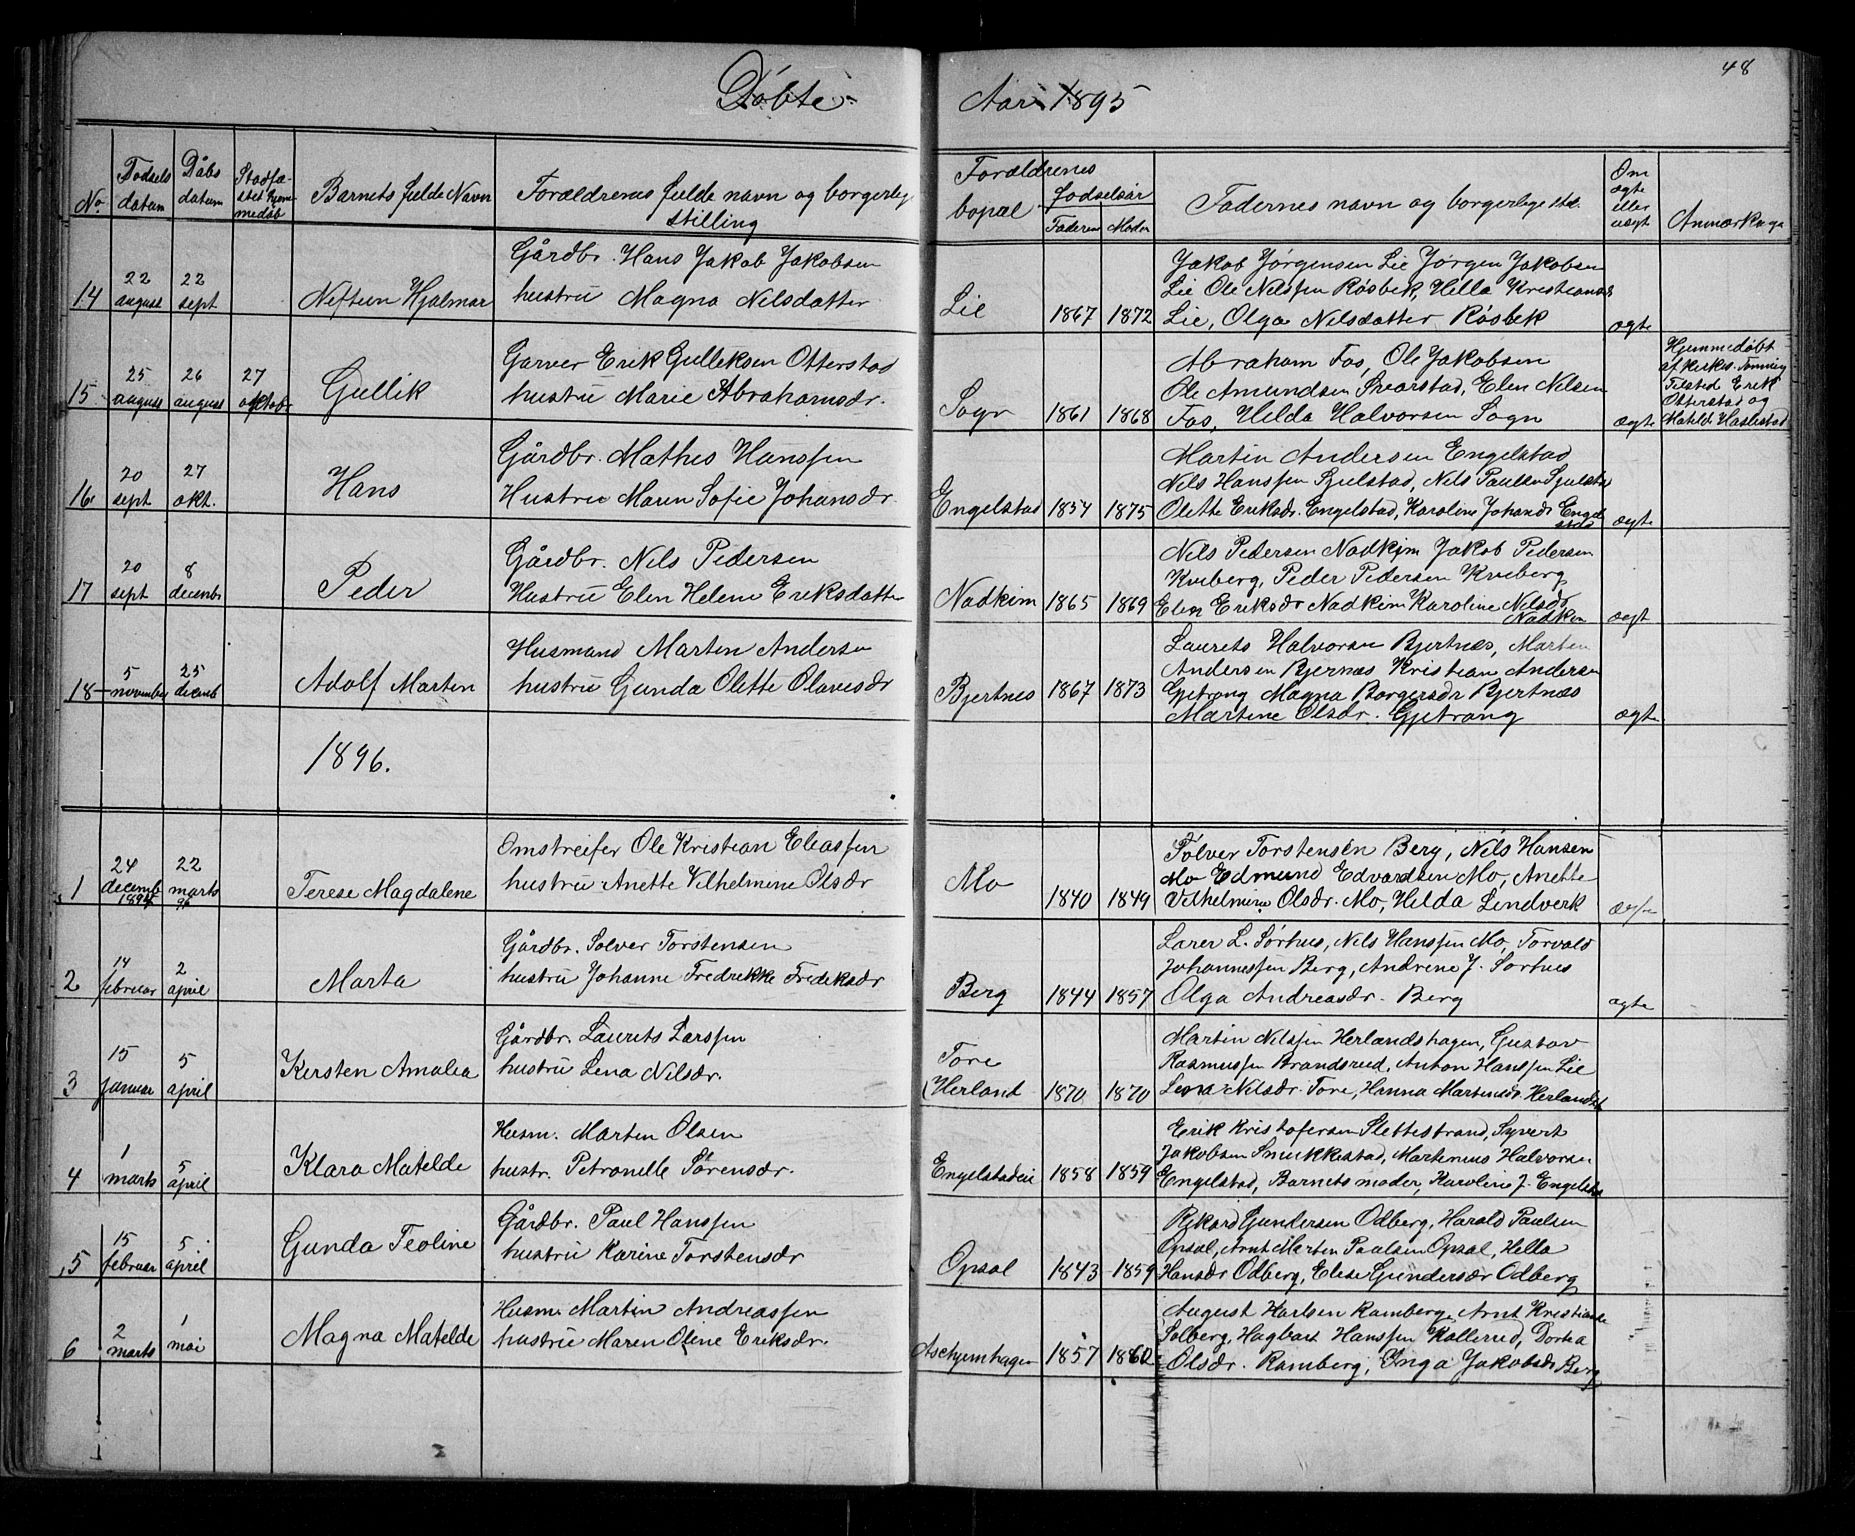 48
Döbte Aar 1895
No. Fodsels datum Dåbs datum Stadfæstet hjemmedöb Barnets fulde Navn Forældrenes fulde navn og borgerlige stilling Forældrenes bopæl fodselsår Faderen Moder Fadernes navn og borgerlige stil. Om ægte eller uægt Anmærkninge
14 22 august 22 sept Neftun Hjalmar
Gårdbr. Hans Jakob Jakobsen
hustru Magna Nilsdatter
Lie 1867 1872
Jakob Jörgensen Lie Jörgen Jakobsen
Lie Ole Nilssen Rösbek, Hella Kristiansdr
Lie, Olga Nilsdatter Rösbek
ægte
15 25 august 26 august 27 oktobr Gullik
Garver Erik Gulleksen Otterstad
hustru Marie Abrahamsdr.
Sogn 1861 1868
Abraham Fos, Ole Jakobsen
Ole Amundsen Svarstad, Elen Nilsen
Fos, Hilda Halvorsen Sogn
ægte
Hjemmedöbt
af kirkes.
Tilsted Erik
Otterstad og
Matilde Haslestad
16 20 sept 27 okt. Hans
Gårdbr. Mathis Hanssen
Hustru Maren Sofie Johansdr.
Engelstad 1854 1875
Martin Andersen Engelstad
Nils Hanssen Gjulstad, Nils Paulsen
Olette Eriksdr. Engelstad, Karoline Johansdr Engelstad
ægte
17 20 sept 8 decembr Peder
Gårdbr. Nils Pedersen
Hustru Elen Helene Eriksdatter
Nadkim 1865 1869
Nils Pedersen Nadkim Jakob Pedersen
Kveberg, Peder Pedersen Kveberg
Elen Eriksdr Nadkim Karoline Nilsdr
Nadkim
ægt
18 5 november 25 decemb Adolf Marten
Husmand Marten Andersen
hustru Gunda Olette Olavesdr
Bjertnes 1867 1873
Laurets Halvorsen Bjertnæs, Marten
Andersen Bjernæs Kristian Andersen
Gjetrang Magna Borgersdr Bjertnæs
Martine Olsdr. Gjetrang
ægt
1896.
1 24 decemb 22 marts 96 Terese Magdalene
Omstreifer Ole Kristian Eliassen
hustru Anette Vilhelmine Olsdr
Mo 1840 1849
Tolver Torstensen Berg, Nils Hansen
Mo Edmund Edvardsen Mo, Anette
Vilhelmine Olsdr. Mo, Hilda Lindverk
2 14 februar 2 april Marta
Gårdbr. Solver Torstensen
hustru Johanne Fredrekke Fredeksdr
Berg 1844 1857
Larer L. Sörhus, Nils Hanssen Mo, Torvald
Johannessen Berg, Andrene J. Sorhus
Olga Andreasdr. Berg
ægte
3 15 januar 5 april Kersten Amalea
Gårdbr. Laurets Larssen
hustru Lena Nilsdr.
Tore
Herland 1870 1870
Martin Nilssen Herlandshagen, Gustav
Rasmussen Brandsrud, Anton Hanssen Lie
Lena Nilsdr Tore, Hanna Martensdr. Herlandsh
4 1 marts 5 april Klara Matelde
Husm. Marten Olsen
hustr. Petronelle Sörensdr.
Engelstadeie 1858 1859
Erik Kristofersen Slettestrand, Syvert
Jakobsen Smukkestad, Martenius Halvorsen
Engelstad, Barnets moder, Karoline J. Engelsta
5 15 februar 5 april Gunda Teoline
Gårdbr. Paul Hanssen
hustru Karine Torstensdr
Opsal 1843 1859
Rikard Gundersen Odberg, Harald Paulsen
Opsal, Arnt Marten Paulsen Opsal, Hella
Hansdr Odberg, Elese Gundersdr Odberg
6 2 marts 1 mai Magna Matelde
Husm. Martin Andreassen
hustru Maren Oline Eriksdr.
Aschjemhagen 1857 1860
August Karlsen Ramberg, Arnt Kristianse
Solberg, Hagbart Hanssen Kallerud, Dortea
Olsdr. Ramberg, Inga Jakobsdr Berg